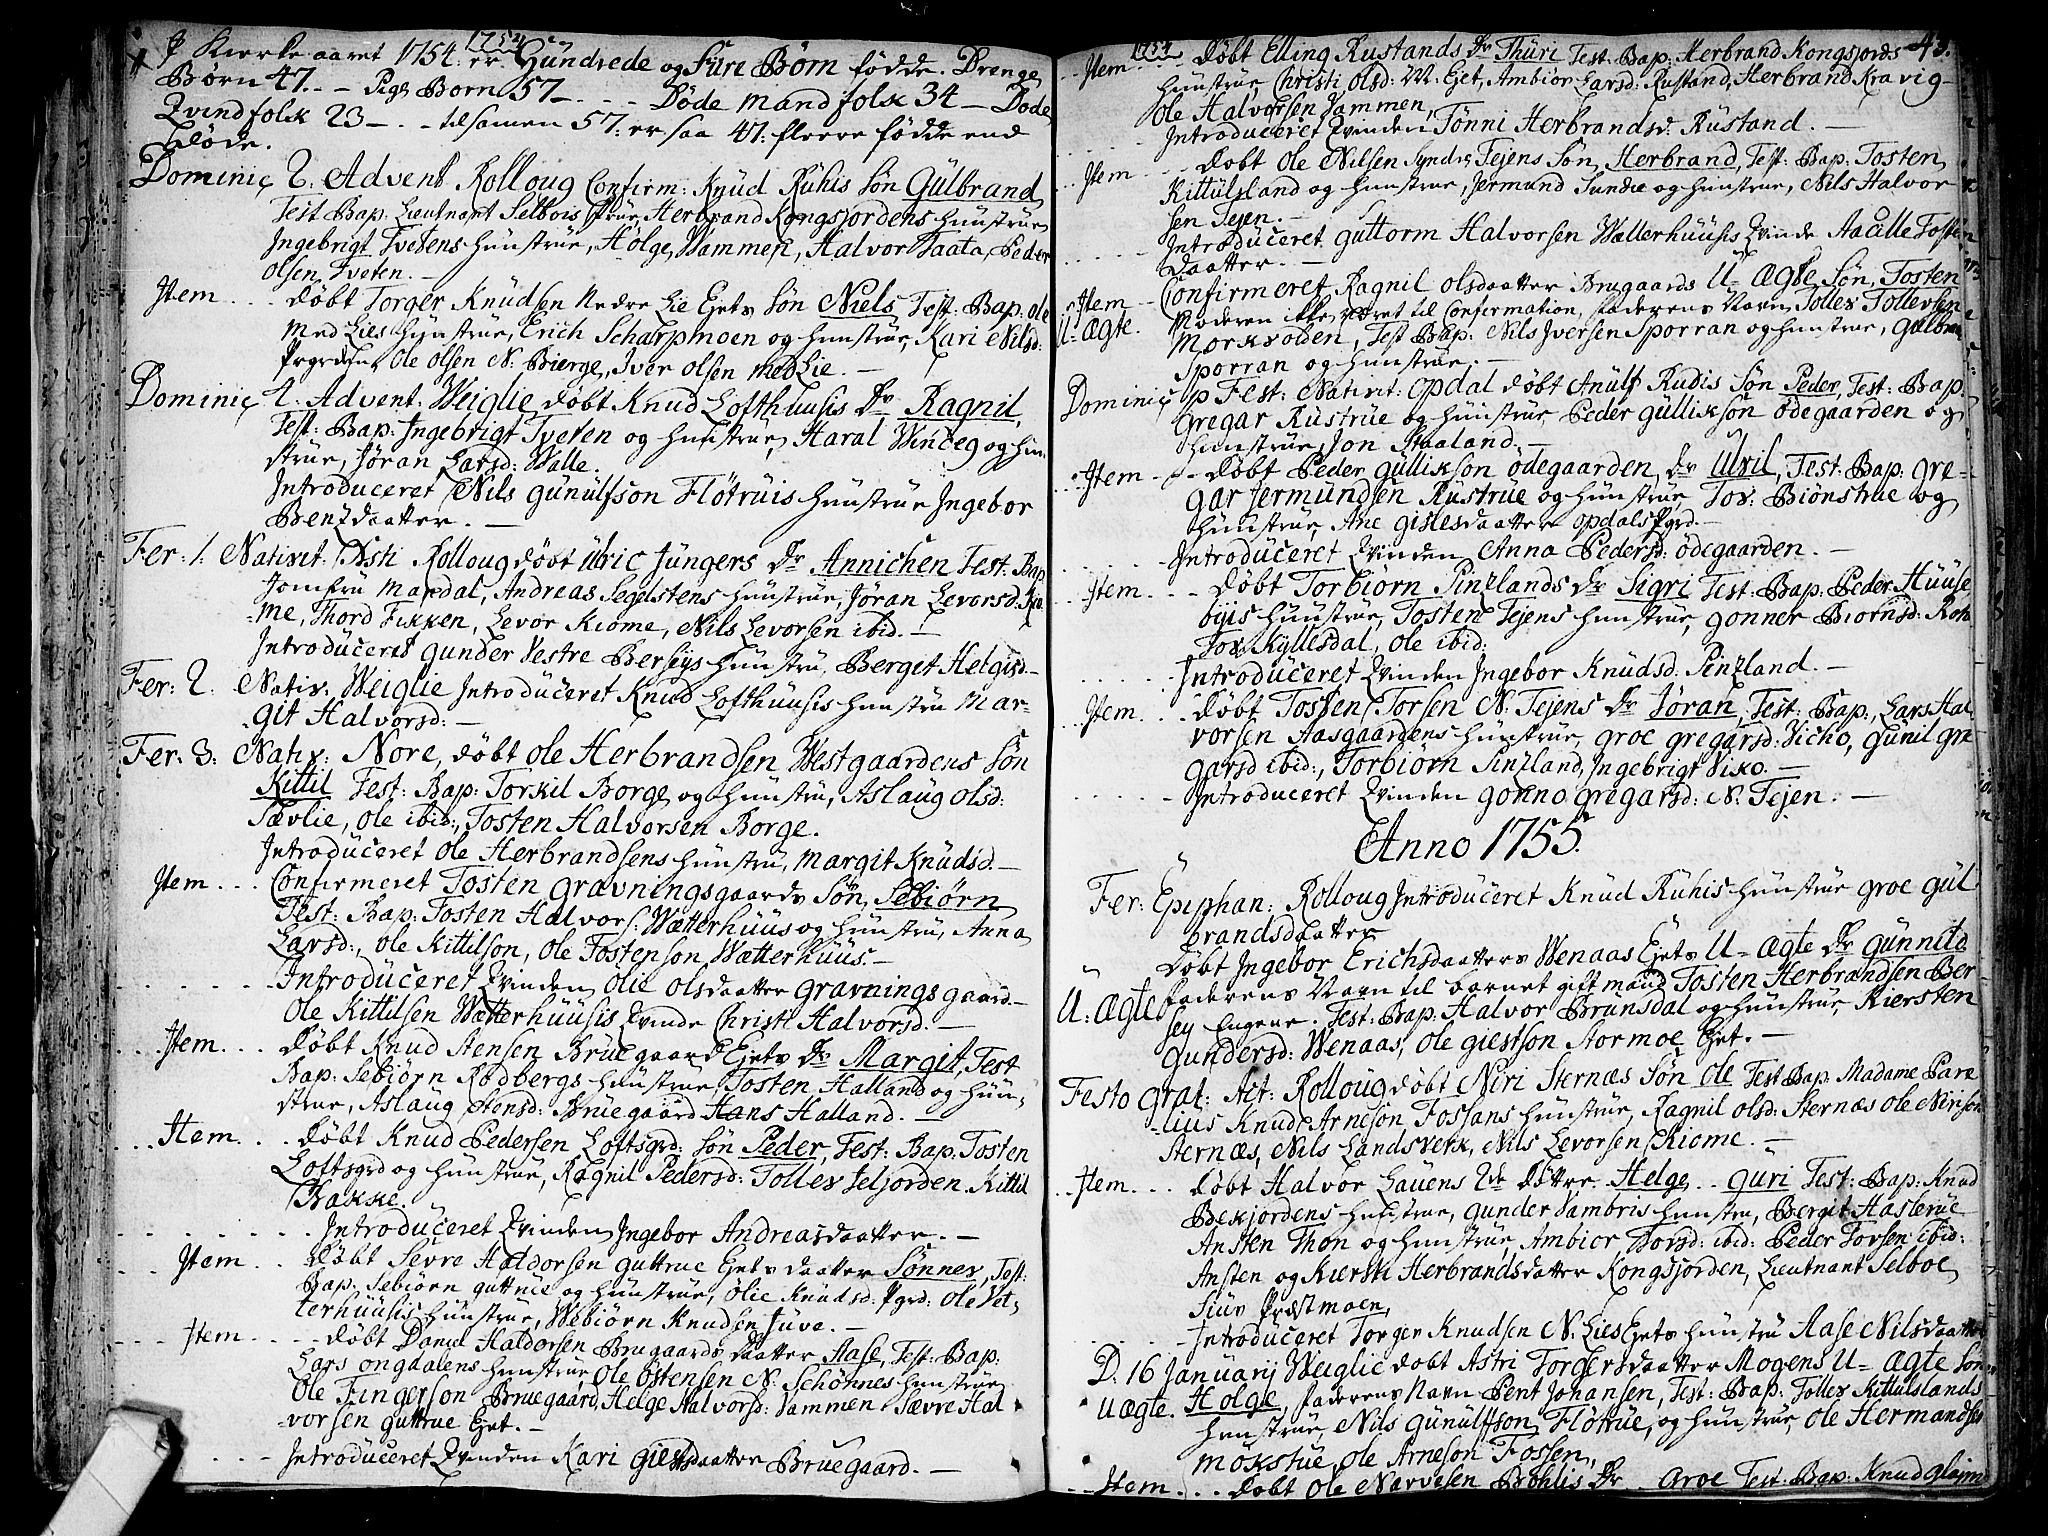 1754
J Kierke aaret 1754 er Hundrede og Fire Børn fødde. Drenge
Børn 47. - - Pige Børn 57 - . - - Døde mandfolk 34 - Døde
Qvindfolk 23 - . - tilsamen 57: er saa 47: fleere fødde end
døde.
Dominic 2. Advent Rolloug Confirm: Knud Ruhis Søn Gulbrand
Test: Bap: Lieutnant Selbois frue, Herbrand Kongsjordens hustrue
Ingebrigt Tvetens hustrue, Holge Wammen, Halvor Taata, Peder
olsen Tveten. -
Item . . . døbt Torger Knudsen Nedre Lie Eyets Søn Niels Test: Bap: ole
Med Lies hustrue, Erich Scharpmoen og hustrue, Kari Nilsd:
Prgrden, ole olsen N. Bierge, Iver olsen MedLie. -
Dominic Advent. Weiglie døbt Knud Lofthuusis Dr Ragnil,
Test: Bap: Ingebrigt Tveten og hustrue, Haral Winceg og hu-
strue, Jøran Larsd: Walle.
Introduceret Nils Gunulfson Fløtruis hustrue Ingebor
Bentzdaatter. -
Fer: 1. Nativit: Xsti Rolloug døbt Ulric Jungers Dr Annichen Test: Bap
Jomfru Mandal, Andreas Segelstens hustrue, Jøran Levorsd: Kio
me, Thord Fikken, Levor Kiome, Nils Levorsen ibid. -
Introduceret Gunder Vestre Berseys hustru, Berget Helgisd -
Fer: 2. Nativ: Weiglie Introduceret Knud Lofthuusis hustru Mar-
git Halvorsd: -
Fer: 3. Nativ: Nore, døbt ole Herbrandsen Westgaardens Søn
Kittil Test: Bap: Torkil Borge og hustru, Aslaug olsd:
Tævlie, ole ibid:, Tosten Halvorsen Borge.
Introduceret ole Herbrandsens hustru, Margit Knudsd. -
Item . . . Confirmeret Tosten Gravningsgaards Søn, Sebiørn
Test: Bap: Tosten Halvors: Wætterhuus og hustru, Anna
Larsd:, ole Kittilson, ole Tostenson Wætterhuus. -
Introduceret Qvinden olie olsdaatter Gravningsgaard -
Ole Kittilsen Wætterhuusis Qvinde Christi Halvorsd. -
Item. . . døbt Knud Stensen Bruegaard Eyets Dr Margit, Test
Bap: Sebiørn Rodbergs hustrue, Tosten Halland og huu-
strue, Aslaug Stensd: Bruegaard Hans Halland. -
Item . . . døbt Knud Pedersen Loftsgrd: Søn Peder, Test: Bap: Tosten
Loftsgrd og hustrue, Ragnil Pedersd: Tollev Seljorden. Kittil
Bakke.
Introduceret Qvinden Ingebor Andreasdaatter. -
Item . . . døbt Sevre Haldorsen Guttrue Eyets daatter Sønnev, Test:
Bap: Sebiørn Guttrue og hustrue, olie Knudsd: Pgrd: ole Vet-
terhuusis hustrue, Webiørn Knudsen Juve. -
Item . . . døbt Daniel Haldorsen Bruegaards daatter Aase, Test: Bap:
Lars ongdalens hustrue ole østensen N. Schønnes hustrue
Ole Fingerson Bruegaard, Helge Halvorsd: Vammen. Sævre Hal
vorsen Guttrue Eyet. -
Introduceret Qvinden Kari Giestsdaatter Bruegaard. -
1754 43.
Item . . . døbt Elling Rustands Dr Thuri Test: Bap: Herbrand Kongsjords
hustrue, Christi olsd: M: Eyet, Ambior Larsd: Rustand, Herbrand Kravig-
ole Halvorsen Vammen,
Introduceret Qvinden Tønni Herbrandsd. Rustand. -
Item . . . døbt Ole Nilsen Syndre Tejens Søn Herbrand, Test: Bap: Tosten
Kittulsland og hustrue, Jermund Sundie og hustrue, Nils Halvor
sen Tejen. -
Introduceret Guttorm Halvorsen Wætterhuusis Qvinde Aacille Tosten
daatter. -
Item - Confirmeret Ragnil olsdaatter Bruegaards U-ægte Søn, Tosten
U-ægte. Moderen ikke været til Confirmation, faderens Navn Tollev Tollevsen
Morkvolden, Test: Bap: Nils Iversen Sporran og hustrue, Gulbran
Sporran og hustrue. -
Dominic p Fest: Nativit: Opdal døbt Anulf Rudis Søn Peder, Test: Bap:
Gregar Rustrue og hustrue Peder Gullikson ødegaarden og
hustrue, Jon Staaland. -
Item - døbt Peder Gullikson ødegaarden, Dr Ulvil, Test: Bap: Gre-
gar Jermundsen Rustrue og hustrue, Tov: Biønstrue og
hustrue, Ane Gislesdaatter opdals Pgrd. -
Introduceret Qvinden Anna Pedersd: ødegaarden. -
Item . . . døbt Torbiørn Pinzlands Dr Sigri Test: Bap: Peder Huuse
byis hustrue, Tosten Tejens hustrue, Gonner Biornsd:
Tov Kyllesdal, ole ibid:
Introduceret Qvinden Ingebor Knudsd: Pinzland. -
Item . . . døbt Tosten Torsen N. Tejens Dr Jøran, Test: Bap:, Lars Hal
vorsen Aasgaardens hustrue, Groe Gregarsd: Vicho, Gunil Gre
garsd ibid:, Torbiørn Pinzland, Ingebrigt Viko. -
Introduceret Qvinden Gonno Gregarsd: N. Tejen. -
Anno 1755.
Fer: Epiphan: Rolloug Introduceret Knud Ruhis hustrue Groe Gul
brandsdaatter
Døbt Ingebor Erichsdaatters Wenaas Eyets U-ægte Dr Gunnild
U: ægte faderens Navn til barnet gift mand Tosten Herbrandsen Ber
sey Engene. Test: Bap: Halvor Brunsdal og hustrue, Kiersten
Gundersd: Wenaas, ole Giestson Stormoe Eyet. -
Festo Grat: Act: Rolloug døbt Niri Sternæs Søn ole Test Bap: Madame Pare
lius Knud Arneson Fossans hustrue, Ragnil olsd: Sternæs ole Nirison
Sternæs, Nils Landsverk, Nils Levorsen Kiome. -
Item . . . døbt Halvor Lauens 2de døttre Helge . . Guri Test: Bap: Knud
Bekjordens hustrue, Gunder Vambris hustru, Bergit Hasterue
Ansten Thon og hustrue, Ambior Torsd: ibid: Peder Torsen ibid:
Ansten og Kiersti Herbrandsdatter Kongsjorden, Lieutnant Selboe
Siuv Præstmoen,
Introduceret Torger Knudsen N. Lies Eyets hustru Aase Nilsdaatter
D: 16 Januarij Weiglie døbt Astri Torgersdaatter Mogens U-ægte Søn
Uægte. Holge, faderens Navn Pent Johansen, Test: Bap: Tollev Kittulslands
hustrue, Nils Gunulfson Fløtrue, og hustrue, ole Hermandsen
Mokstue, ole Arneson Fossen,
Item . . . døbt Ole Narvesen Bøhlis Dr Groe Test: Bap: Knud Glaim